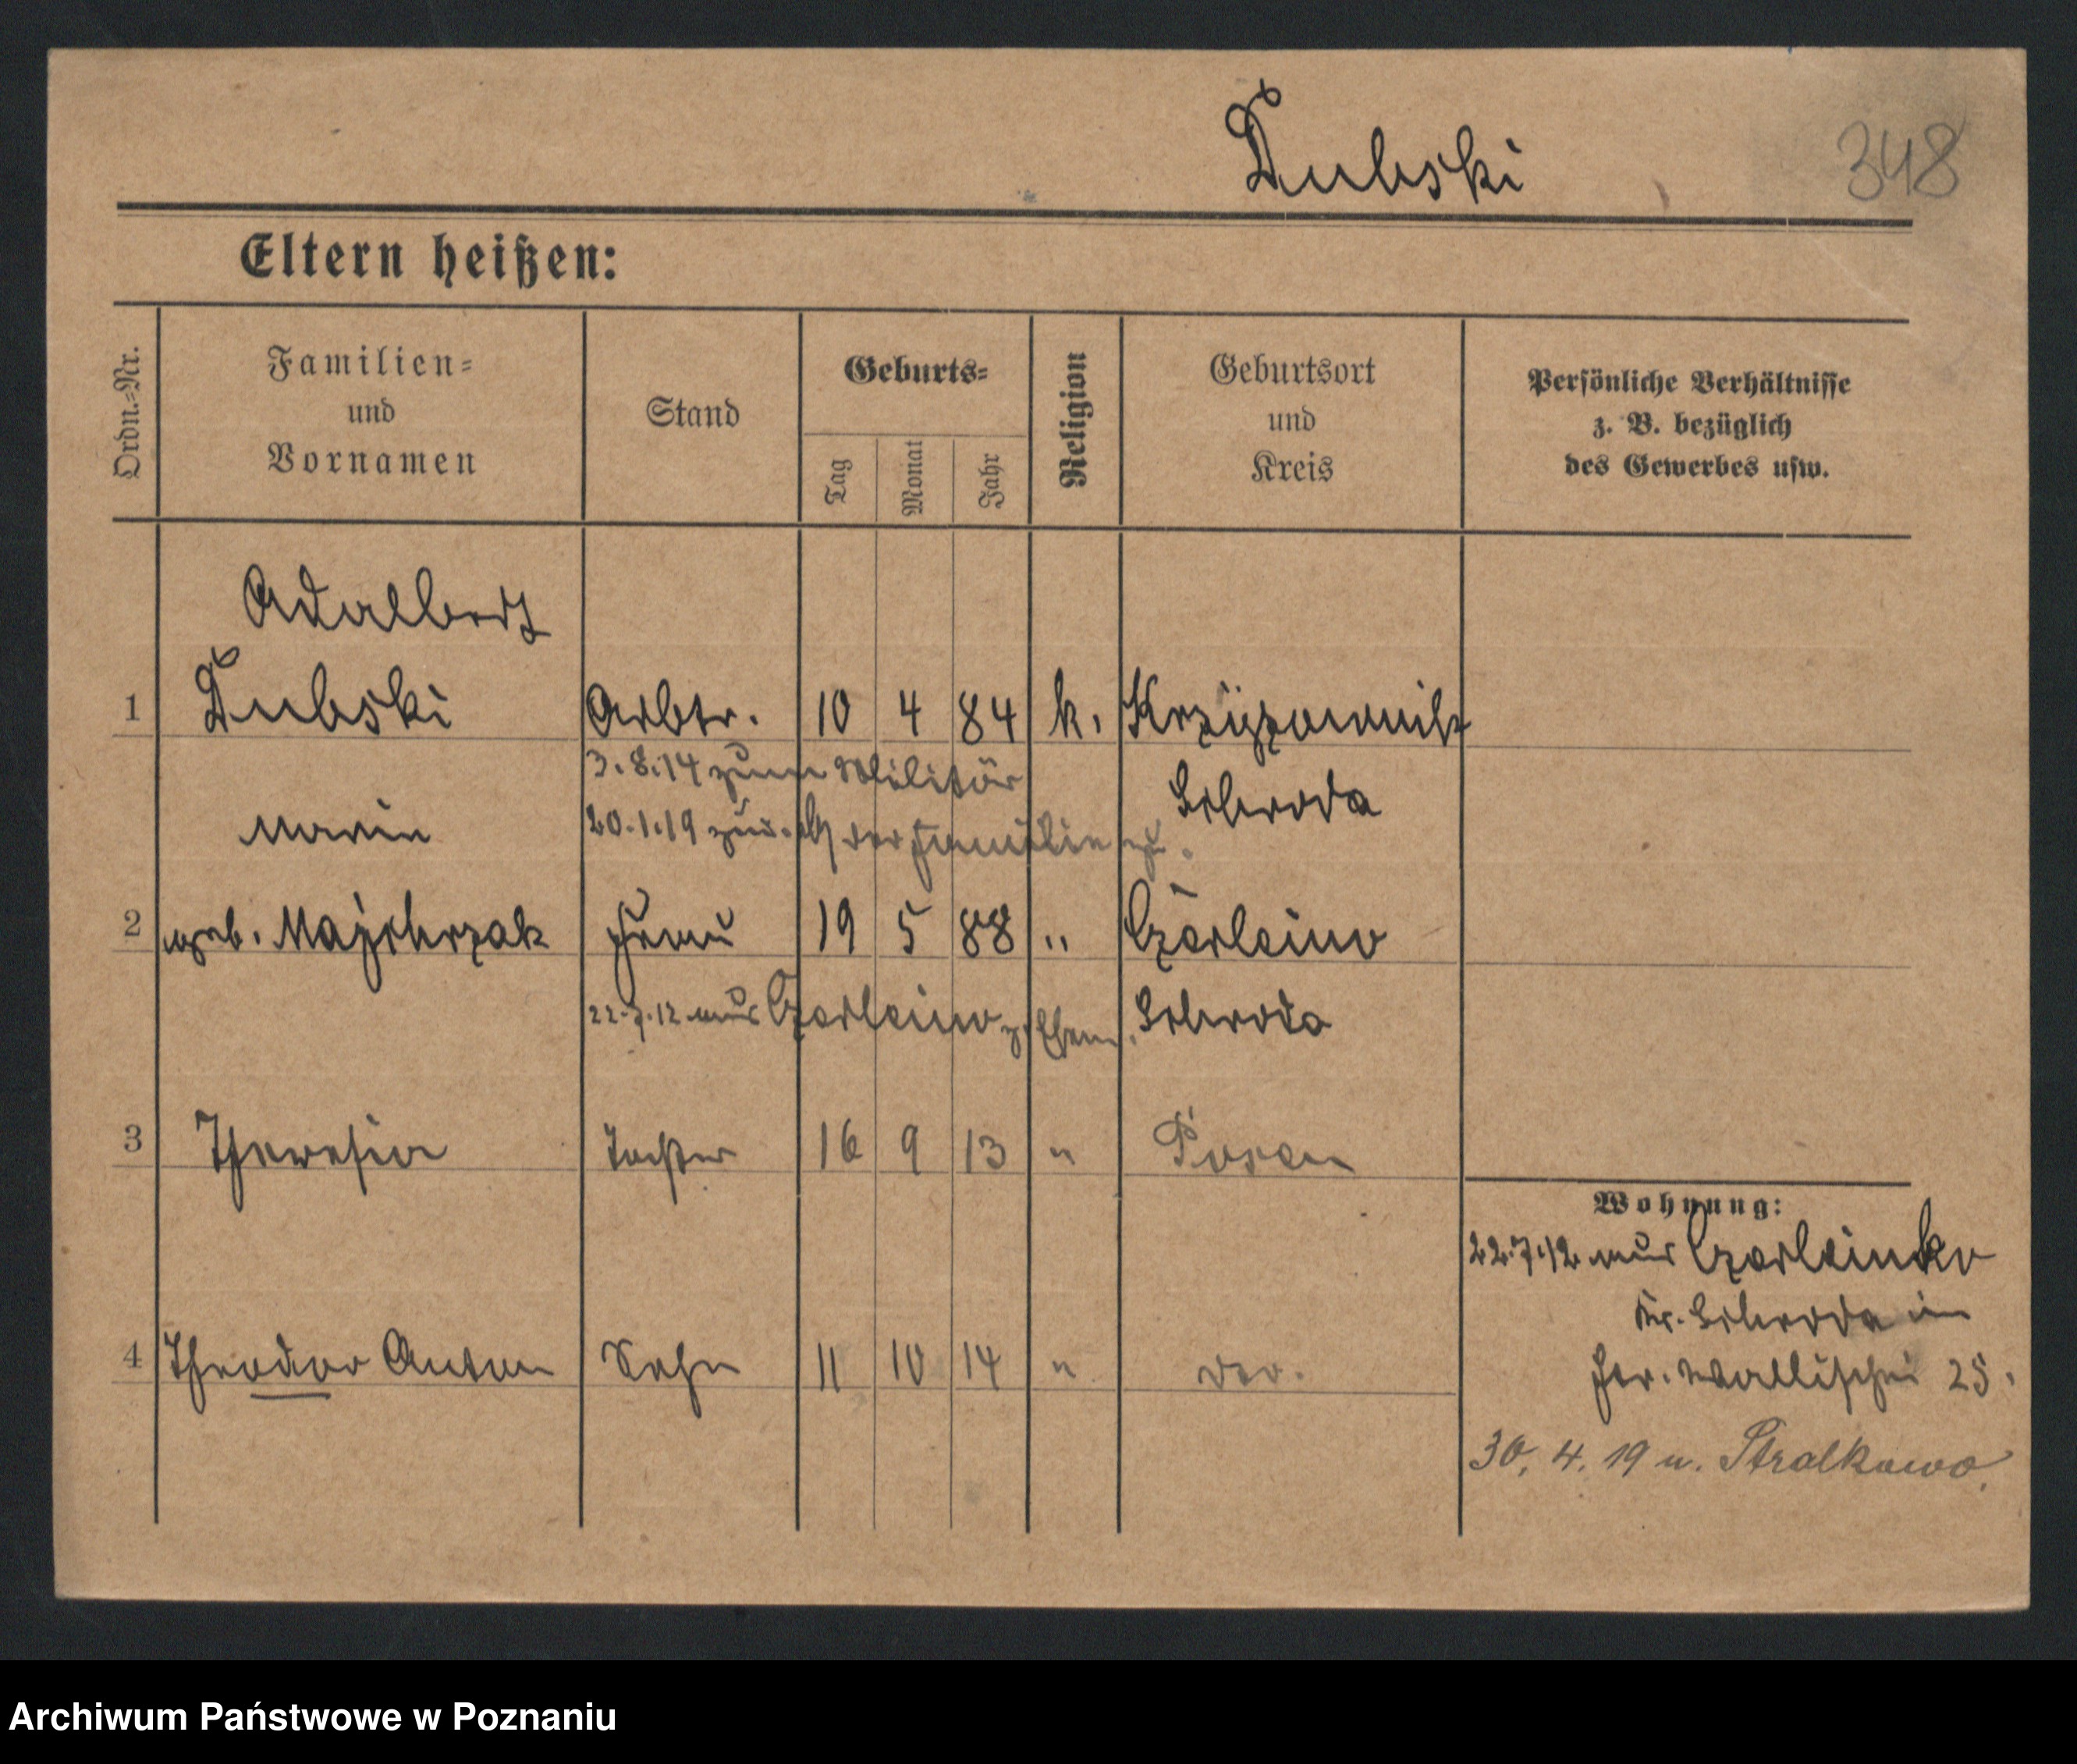 Dubski
348
Eltern heißen:
Ordn.-Nr.
Familien-
und
Vornamen
Stand
Geburts-
Tag
Monat
Jahr
Religion
Geburtsort
und
Kreis
Persönliche Verhältnisse
z. B. bezüglich
des Gewerbes usw.
Adalbert
1 Dubski Arbtr. 10 4 84 k. Krzyzownik
3.8.14 zum Militär
Schroda
Maria
20.1.19 zur. der Familie
2 geb. Majchrzak Frau 19 5 88 " Czerleino
22.7.12 aus Czerleino z. Ehem. Schroda
3 Theresia Tochter 16 9 13 " Posen
Wohnung:
22.7.12 aus Czerleinko
Kr. Schroda in
hier. Wallischei 25.
4 Theodor Anton Sohn 11 10 14 " do.
30. 4. 19 n. Stralkowo.
Archiwum Państwowe w Poznaniu